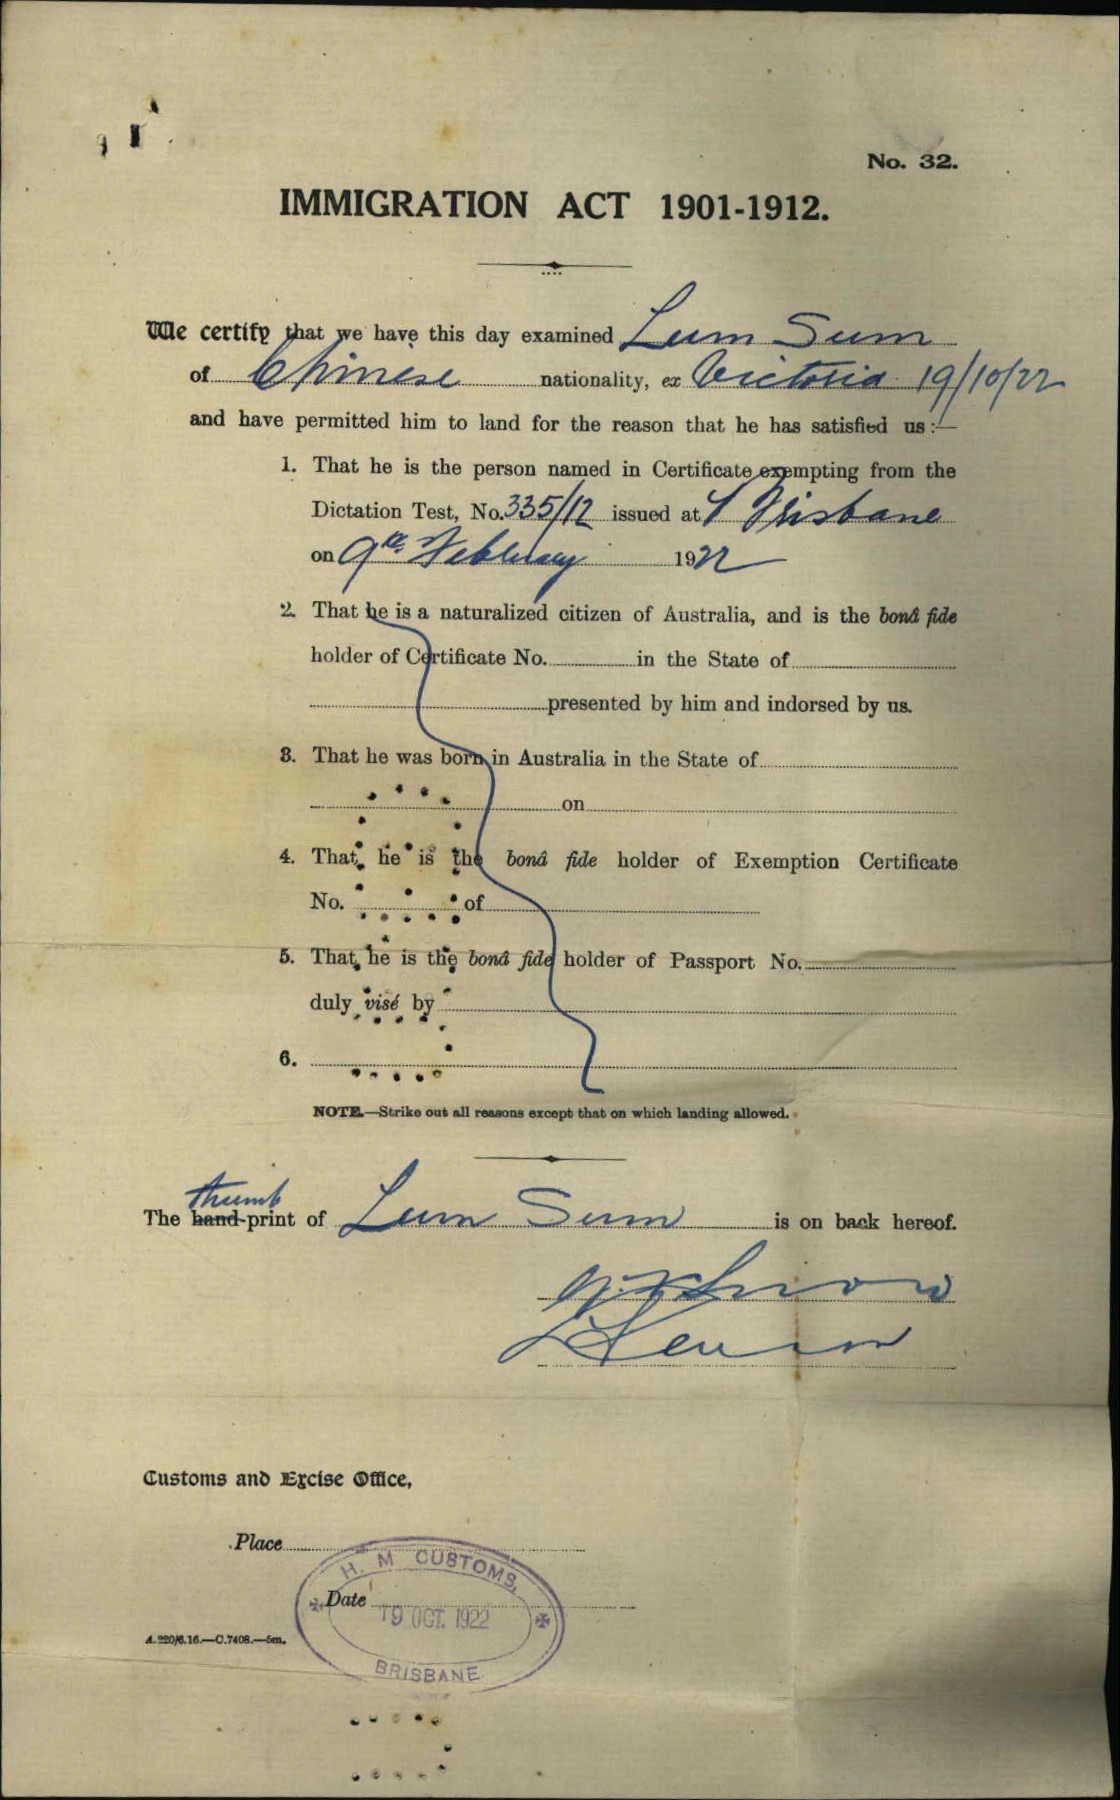 No. 32.
IMMIGRATION ACT 1901-1912.
We certify that we have this day examined Lum Sum
of Chinese nationality, ex Victoria 19/10/22
and have permitted him to land for the reason that he has satisfied us:—
1. That he is the person named in Certificate exempting from the
Dictation Test, No. 335/12 issued at Brisbane
on 9th February 1922
2. That he is a naturalized citizen of Australia, and is the bonâ fide
holder of Certificate No. in the State of
presented by him and indorsed by us.
3. That he was born in Australia in the State of
on
4. That he is the bonâ fide holder of Exemption Certificate
No. of
5. That he is the bonâ fide holder of Passport No.
duly visé by
6.
NOTE.—Strike out all reasons except that on which landing allowed.
thumb
The hand-print of Lum Sum is on back hereof.
Customs and Excise Office,
Place
H. M CUSTOMS,
Date
19 OCT. 1922
A.220/6.16.—C.7408.—5m.
BRISBANE